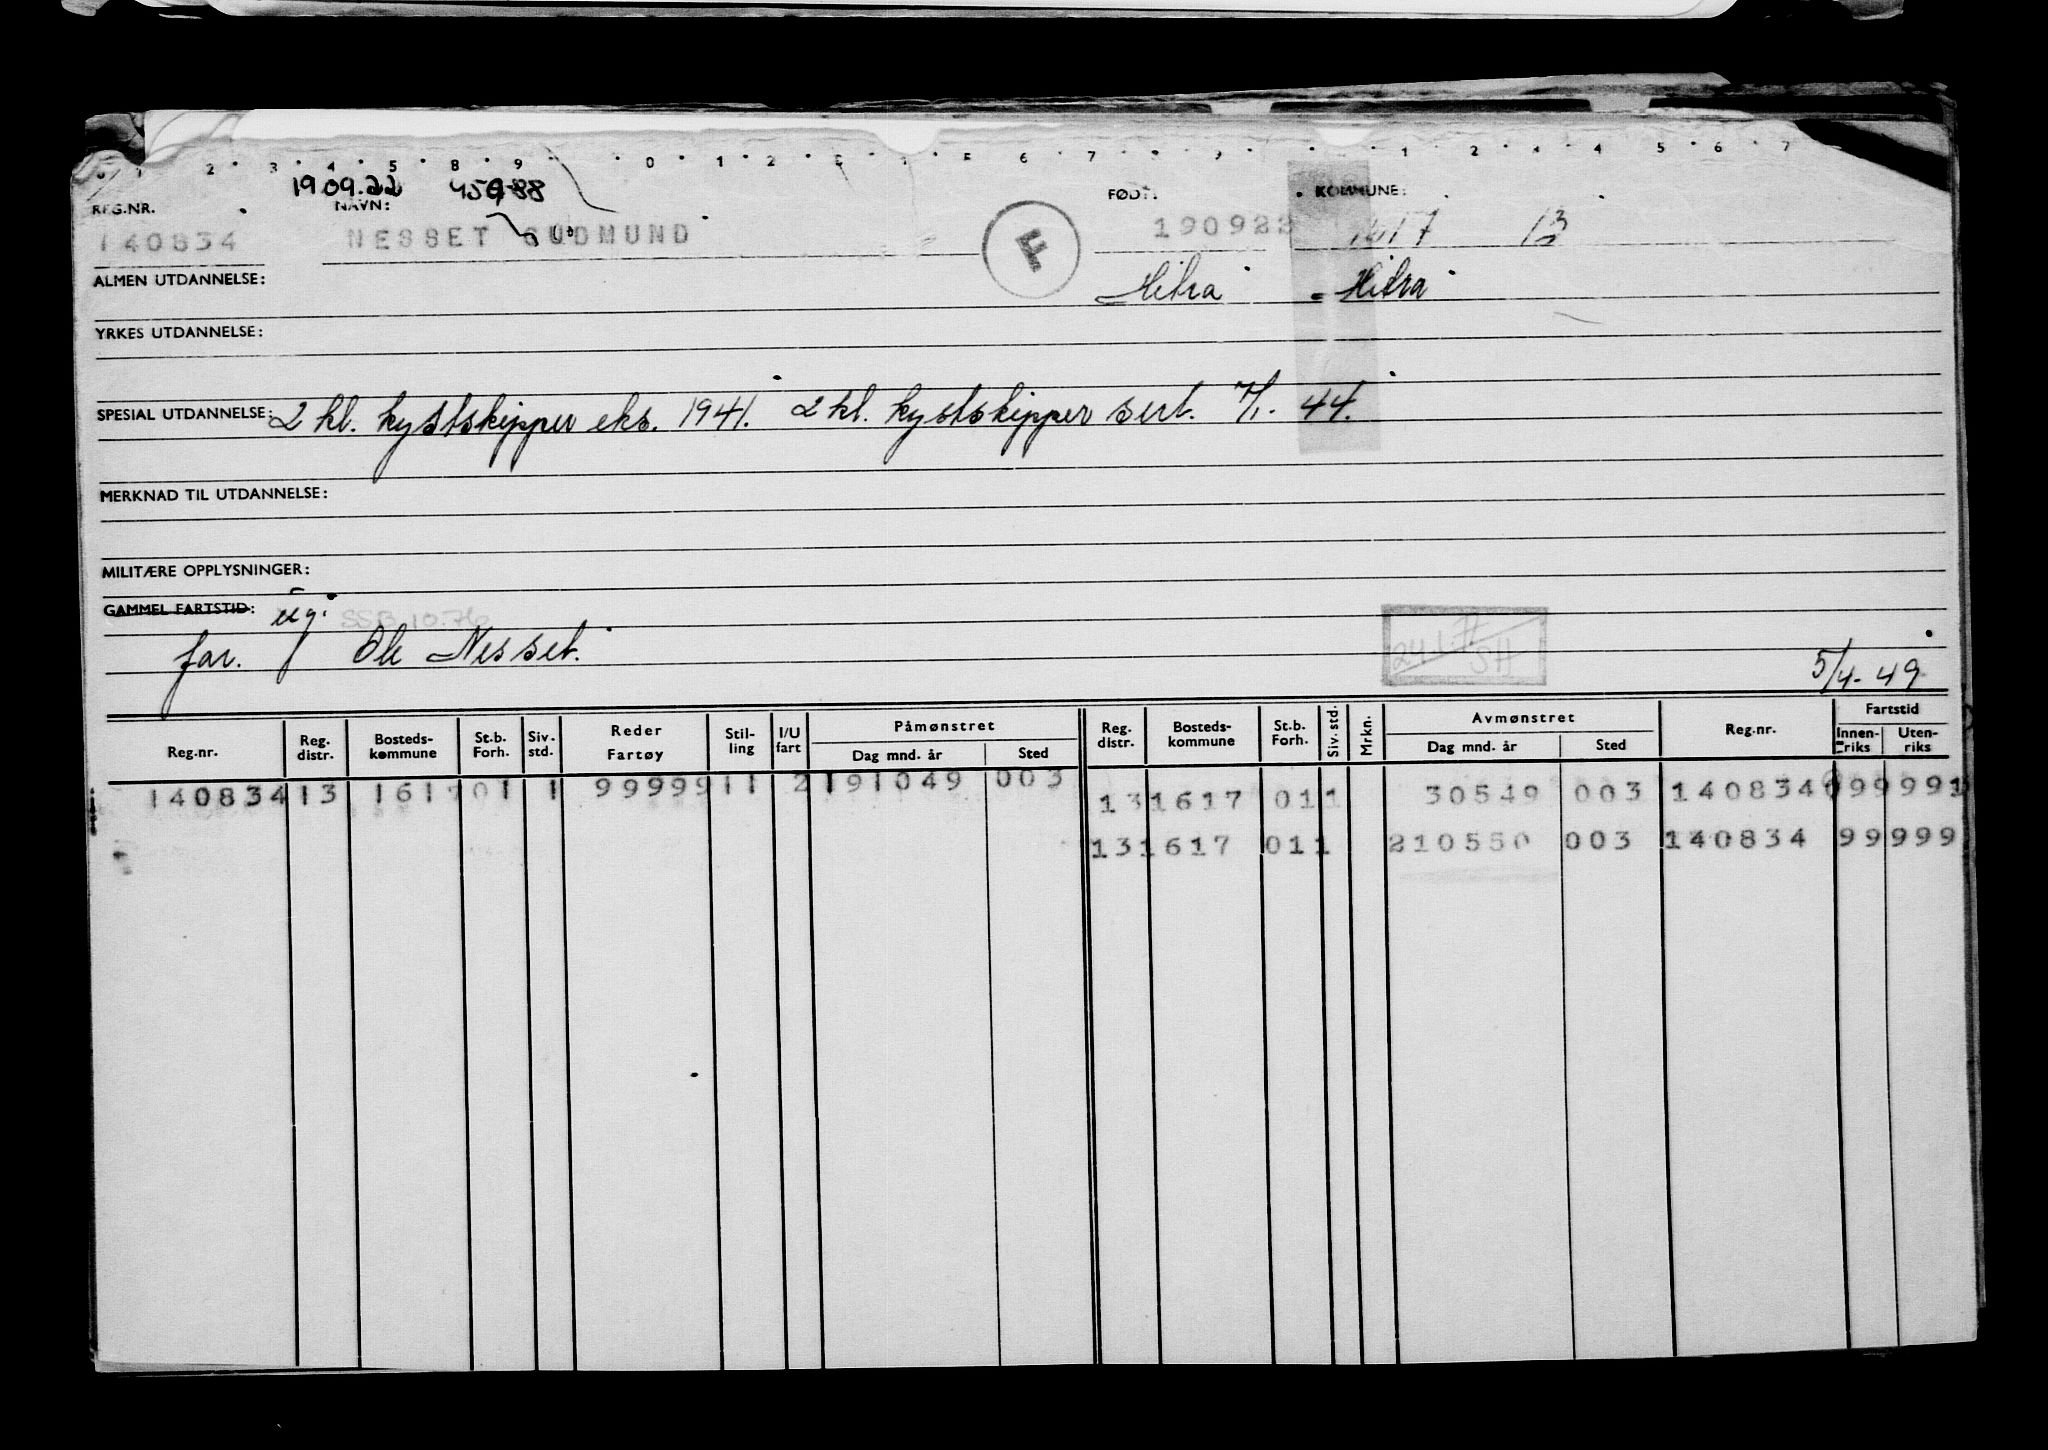 19.09.22
REG.NR.
NAVN:
FØDT:
KOMMUNE:
140834
NESSET GUDMUND
F
190922
1617
13
ALMEN UTDANNELSE:
Hitra
Hitra
YRKES UTDANNELSE:
SPESIAL UTDANNELSE: 2 kl. kystskipper eks. 1941. 2 kl. kystskipper sert. 7/1. 44.
MERKNAD TIL UTDANNELSE:
MILITÆRE OPPLYSNINGER:
GAMMEL FARTSTID: ug.
SSB 10.76
far. Ole Nesset.
5/4-49
Reg.nr. Reg. distr. Bosteds-kommune St.b. Forh. Siv. std. Reder Fartøy Stil-ling I/U fart Påmønstret Dag mnd. år Sted Reg. distr. Bosteds-kommune St.b. Forh. Siv. std. Mrkn. Avmønstret Dag mnd. år Sted Reg.nr. Fartstid Innen-riks Uten-riks
140834 13 1617 01 1 99999 11 2 191049 003 13 1617 01 1 30549 003 140834 99 991
13 1617 01 1 210550 003 140834 99 999